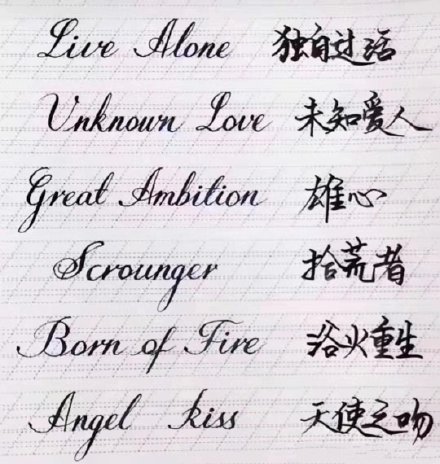 Live Alone 独自过活
Unknown Love 未知爱人
Great Ambition 雄心
Scrounger 拾荒者
Born of Fire 浴火重生
Angel kiss 天使之吻